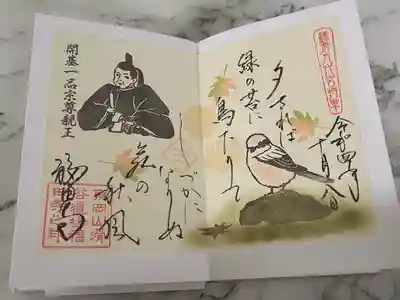 鎌倉六代将軍
令和四年
十月八日
夕されば
緑の苔に
鳥下りて
しづかに
なりぬ
苑の
秋風
開基一品宗尊親王
福田寺